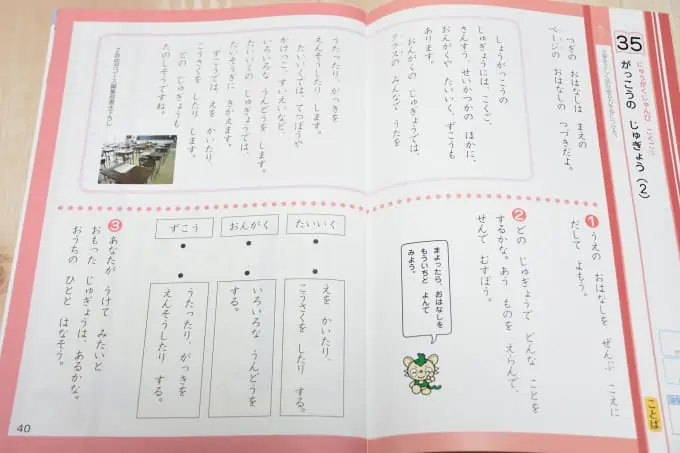 35
にゅうがくじゅんび こくご
がっこうの じゅぎょう(2)
つぎの おはなしは まえの
ページの おはなしの つづきだよ。
しょうがっこうの
じゅぎょうには、こくご、
さんすう、せいかつかの ほかに、
おんがくや たいいく、ずこうも
あります。
おんがくの じゅぎょうでは、
クラスの みんなで うたを
うたったり、がっきを
えんそうしたり します。
たいいくでは、てつぼうや
かけっこ、すいえいなど、
いろいろな うんどうを します。
たいいくの じゅぎょうでは、
たいそうぎに きがえます。
ずこうでは、えを かいたり、
こうさくを したり します。
どの じゅぎょうも
たのしそうですね。
1 うえの おはなしを ぜんぶ こえに
だして よもう。
2 どの じゅぎょうで どんな ことを
するかな。あう ものを えらんで、
せんで むすぼう。
まよったら、おはなしを
もういちど よんで
みよう。
たいいく
おんがく
ずこう
えを かいたり、
こうさくを したり する。
いろいろな うんどうを
する。
うたったり、がっきを
えんそうしたり する。
3 あなたが うけて みたいと
おもった じゅぎょうは、あるかな。
おうちの ひとと はなそう。
40
ことば